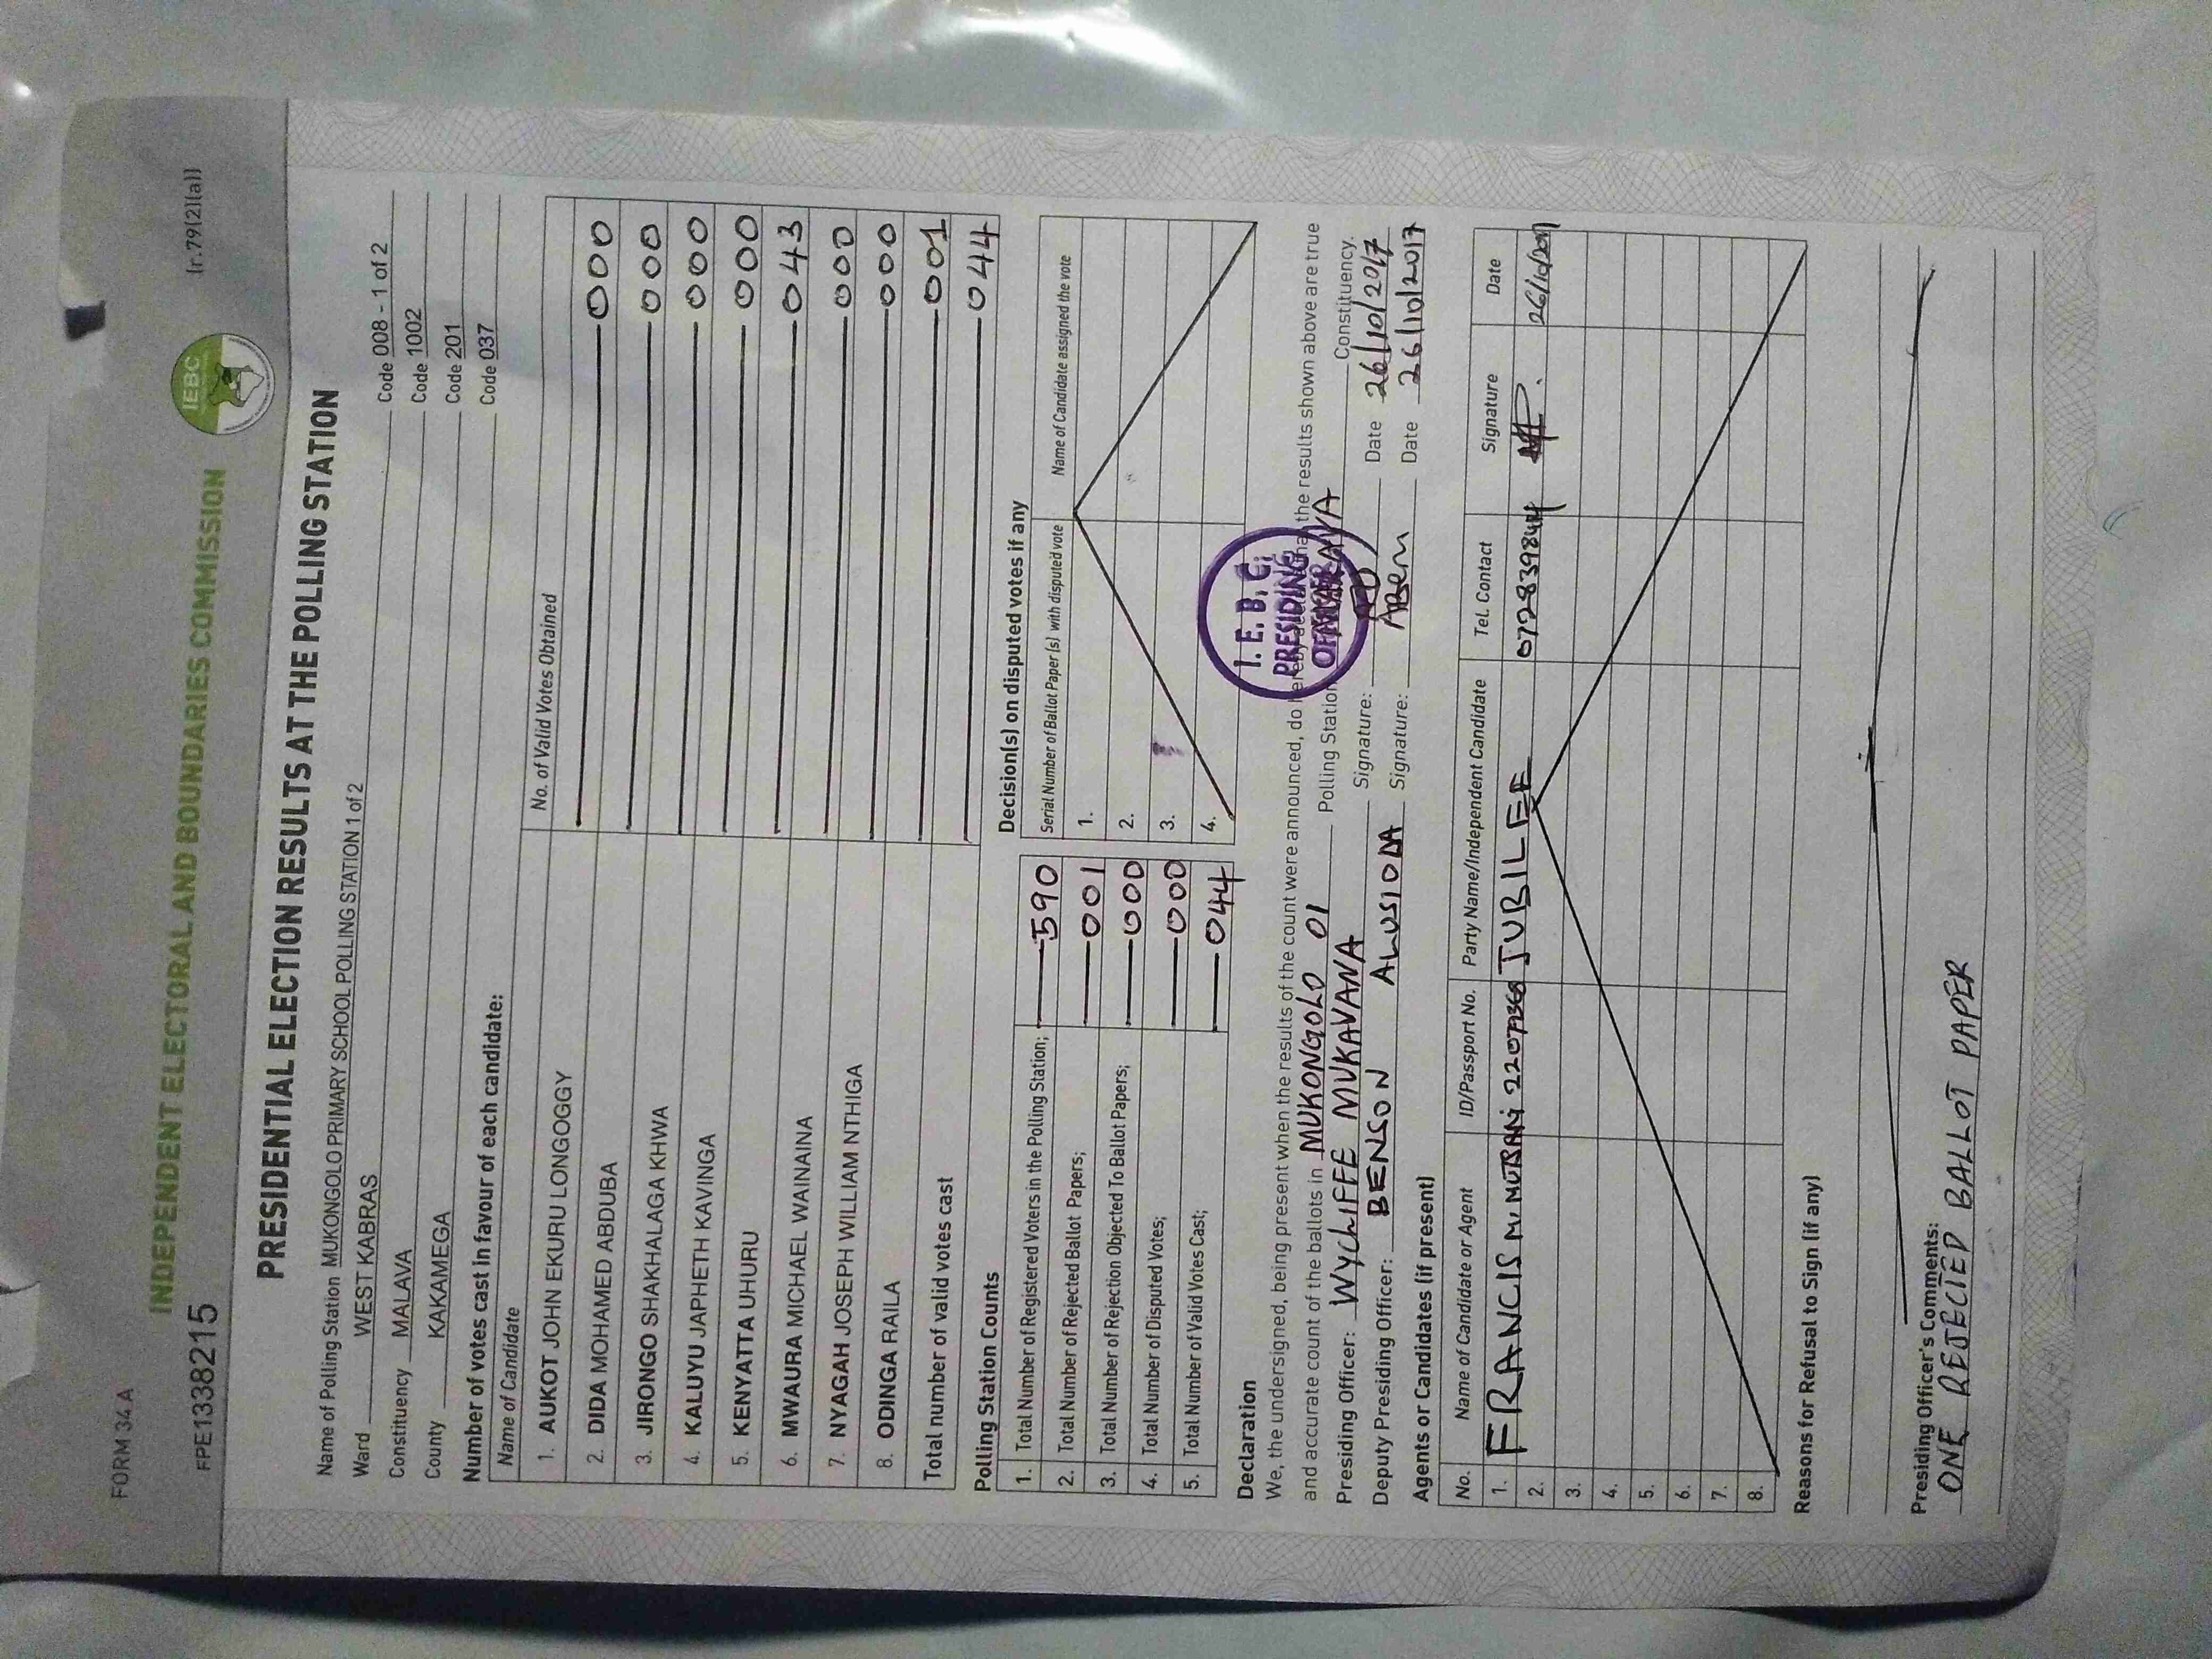 FORM 34 A
(r.79(2)(a))
INDEPENDENT ELECTORAL AND BOUNDARIES COMMISSION
IEBC
FPE1338215
PRESIDENTIAL ELECTION RESULTS AT THE POLLING STATION
Name of Polling Station MUKONGOLO PRIMARY SCHOOL POLLING STATION 1 of 2 Code 008 - 1 of 2
Ward WEST KABRAS Code 1002
Constituency MALAVA Code 201
County KAKAMEGA Code 037
Number of votes cast in favour of each candidate:
Name of Candidate No. of Valid Votes Obtained
1. AUKOT JOHN EKURU LONGOGGY 000
2. DIDA MOHAMED ABDUBA 000
3. JIRONGO SHAKHALAGA KHWA 000
4. KALUYU JAPHETH KAVINGA 000
5. KENYATTA UHURU 043
6. MWAURA MICHAEL WAINAINA 000
7. NYAGAH JOSEPH WILLIAM NTHIGA 000
8. ODINGA RAILA 001
Total number of valid votes cast 044
Polling Station Counts
1. Total Number of Registered Voters in the Polling Station; 590
2. Total Number of Rejected Ballot Papers; 001
3. Total Number of Rejection Objected To Ballot Papers; 000
4. Total Number of Disputed Votes; 000
5. Total Number of Valid Votes Cast; 044
Decision(s) on disputed votes if any
Serial Number of Ballot Paper(s) with disputed vote Name of Candidate assigned the vote
1.
2.
3.
4.
I. E. B. C.
PRESIDING
OFFICER
Declaration
We, the undersigned, being present when the results of the count were announced, do hereby declare that the results shown above are true
and accurate count of the ballots in MUKONGOLO 01 Polling Station Constituency.
Presiding Officer: WYCLIFFE MUKAVANA Signature: Date 26/10/2017
Deputy Presiding Officer: BENSON ALUSIOLA Signature: Date 26/10/2017
Agents or Candidates (if present)
No. Name of Candidate or Agent ID/Passport No. Party Name/Independent Candidate Tel. Contact Signature Date
1. FRANCIS M. JUBILEE 26/10/2017
2.
3.
4.
5.
6.
7.
8.
Reasons for Refusal to Sign (if any)
Presiding Officer's Comments:
ONE REJECTED BALLOT PAPER